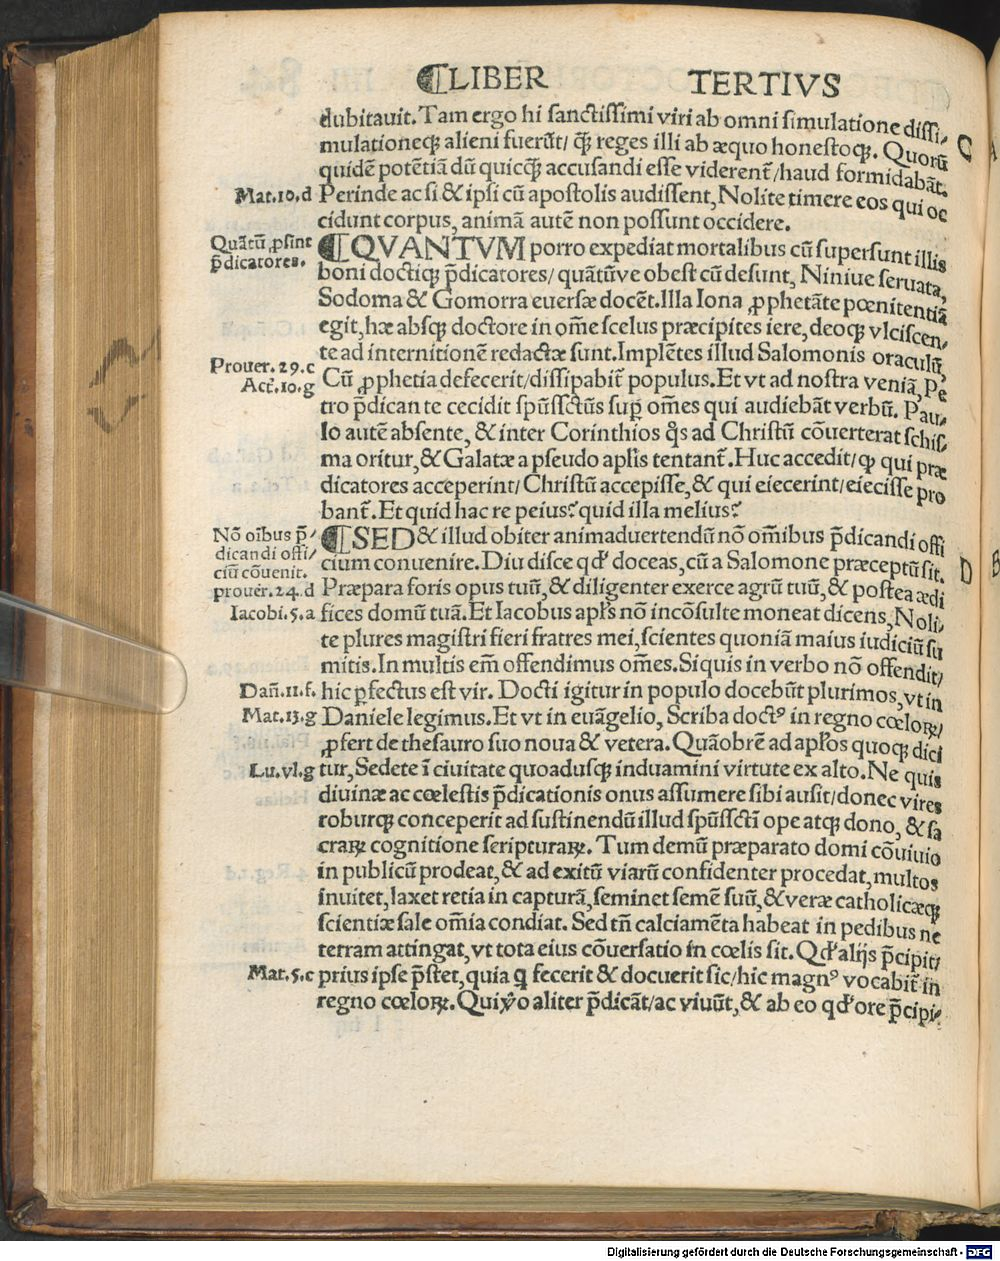 ¶LIBER TERTIVS
dubitauit. Tam ergo hi sanctissimi viri ab omni simulatione dissi/
mulationeqꝫ alieni fuerūt/ q̄ꝫ reges illi ab æquo honestoqꝫ. Quorū C
quidē potētiā dū quicq̄ꝫ accusandi esse viderent̄/haud formidabāt.
Mat.10.d Perinde ac si & ipsi cū apostolis audissent, Nolite timere eos qui oc
cidunt corpus, animā autē non possunt occidere.
Quātū ꝓsint ¶QVANTVM porro expediat mortalibus cū supersunt illis
p̄dicatores. boni doctiqꝫ p̄dicatores/ quātūve obest cū desunt, Niniue seruata,
Sodoma & Gomorra euersæ docēt. Illa Iona ꝓphetāte pœnitentiā
egit, hæ absqꝫ doctore in om̄e scelus præcipites iere, deoqꝫ vlciscen/
te ad internitionē redactæ sunt. Implētes illud Salomonis oraculū,
Prouer.29.c Cū ꝓphetia defecerit/dissipabit̄ populus. Et vt ad nostra veniā, Pe
Act.10.g tro p̄dicante cecidit sp̄ussct̄us sup̱ om̄es qui audiebāt verbū. Pau/
lo autē absente, & inter Corinthios q̊s ad Christū cōuerterat schis/
ma oritur, & Galatæ a pseudo apl̄is tentant̄. Huc accedit/ ꝙ qui præ
dicatores acceperint/ Christū accepisse, & qui eiecerint/ eiecisse pro
bant̄. Et quid hac re peius? quid illa melius?
Nō oībus p̄/ ¶SED & illud obiter animaduertendū nō om̄ibus p̄dicandi offi
dicandi offi/ cium conuenire. Diu disce qd̓ doceas, cū a Salomone præceptū sit. D
ciū cōuenit.
prouer.24.d Præpara foris opus tuū, & diligenter exerce agrū tuū, & postea ædi
Iacobi.5.a fices domū tuā. Et Iacobus apl̄s nō incōsulte moneat dicens, Noli/
te plures magistri fieri fratres mei, scientes quoniā maius iudiciū su
mitis. In multis em̄ offendimus om̄es. Siquis in verbo nō offendit/
Dañ.11.f. hic p̱fectus est vir. Docti igitur in populo docebūt plurimos, vt in
Mat.13.g Daniele legimus. Et vt in euāgelio, Scriba doctꝰ in regno cœloꝝ/
ꝓfert de thesauro suo noua & vetera. Quāobrē ad apl̄os quoqꝫ dici
Lu.vl.g tur, Sedete ī ciuitate quoadusqꝫ induamini virtute ex alto. Ne quis
diuinæ ac cœlestis p̄dicationis onus assumere sibi ausit/ donec vires
roburqꝫ conceperit ad sustinendū illud sp̄ussct̄i ope atqꝫ dono, & sa
craꝝ cognitione scripturaꝝ. Tum demū præparato domi cōuiuio
in publicū prodeat, & ad exitū viarū confidenter procedat, multos
inuitet, laxet retia in capturā, seminet semē suū, & veræ catholicæqꝫ
scientiæ sale om̄ia condiat. Sed tn̄ calciamēta habeat in pedibus ne
terram attingat, vt tota eius cōuersatio in cœlis sit. Qd̓ alijs p̄cipit/
Mat.5.c prius ipse p̄stet, quia q fecerit & docuerit sic/ hic magnꝰ vocabit̄ in
regno cœloꝝ. Qui v̓o aliter p̄dicāt/ ac viuūt, & ab eo qd̓ ore p̄cipi/
Digitalisierung gefördert durch die Deutsche Forschungsgemeinschaft - DFG